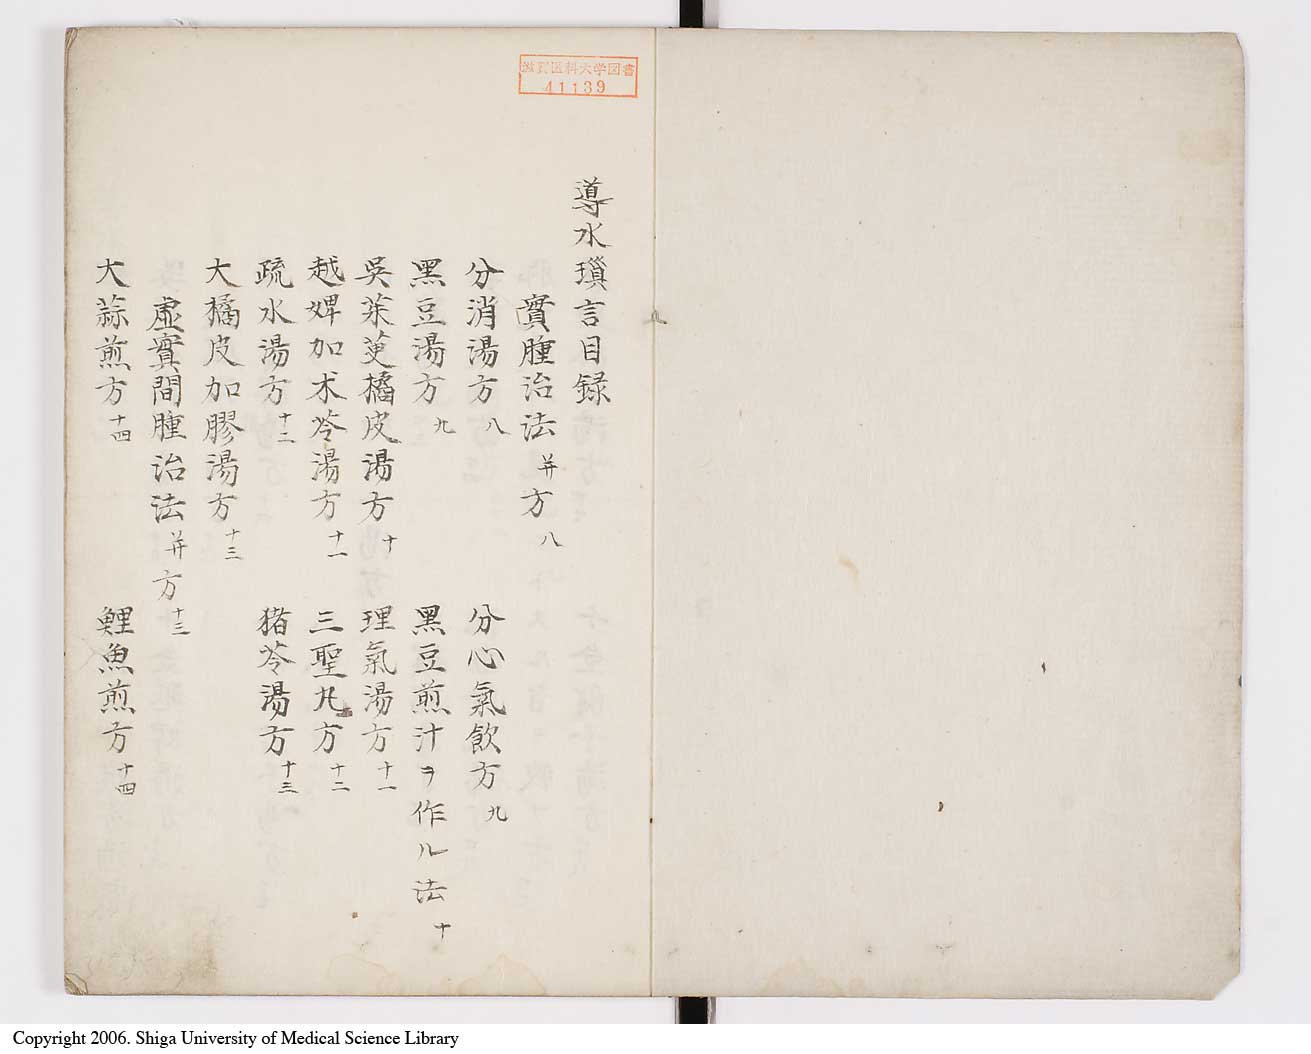 滋賀医科大学図書
41139
導水瑣言目録
實腫治法并方八
分消湯方八 分心氣飲方九
黑豆湯方九 黑豆煎汁ヲ作ル法十
吳茱萸橘皮湯方十 理氣湯方十一
越婢加朮苓湯方十一 三聖丸方十二
疏水湯方十二 猪苓湯方十三
大橘皮加膠湯方十三
虛實間腫治法并方十三
大蒜煎方十四 鯉魚煎方十四
Copyright 2006. Shiga University of Medical Science Library